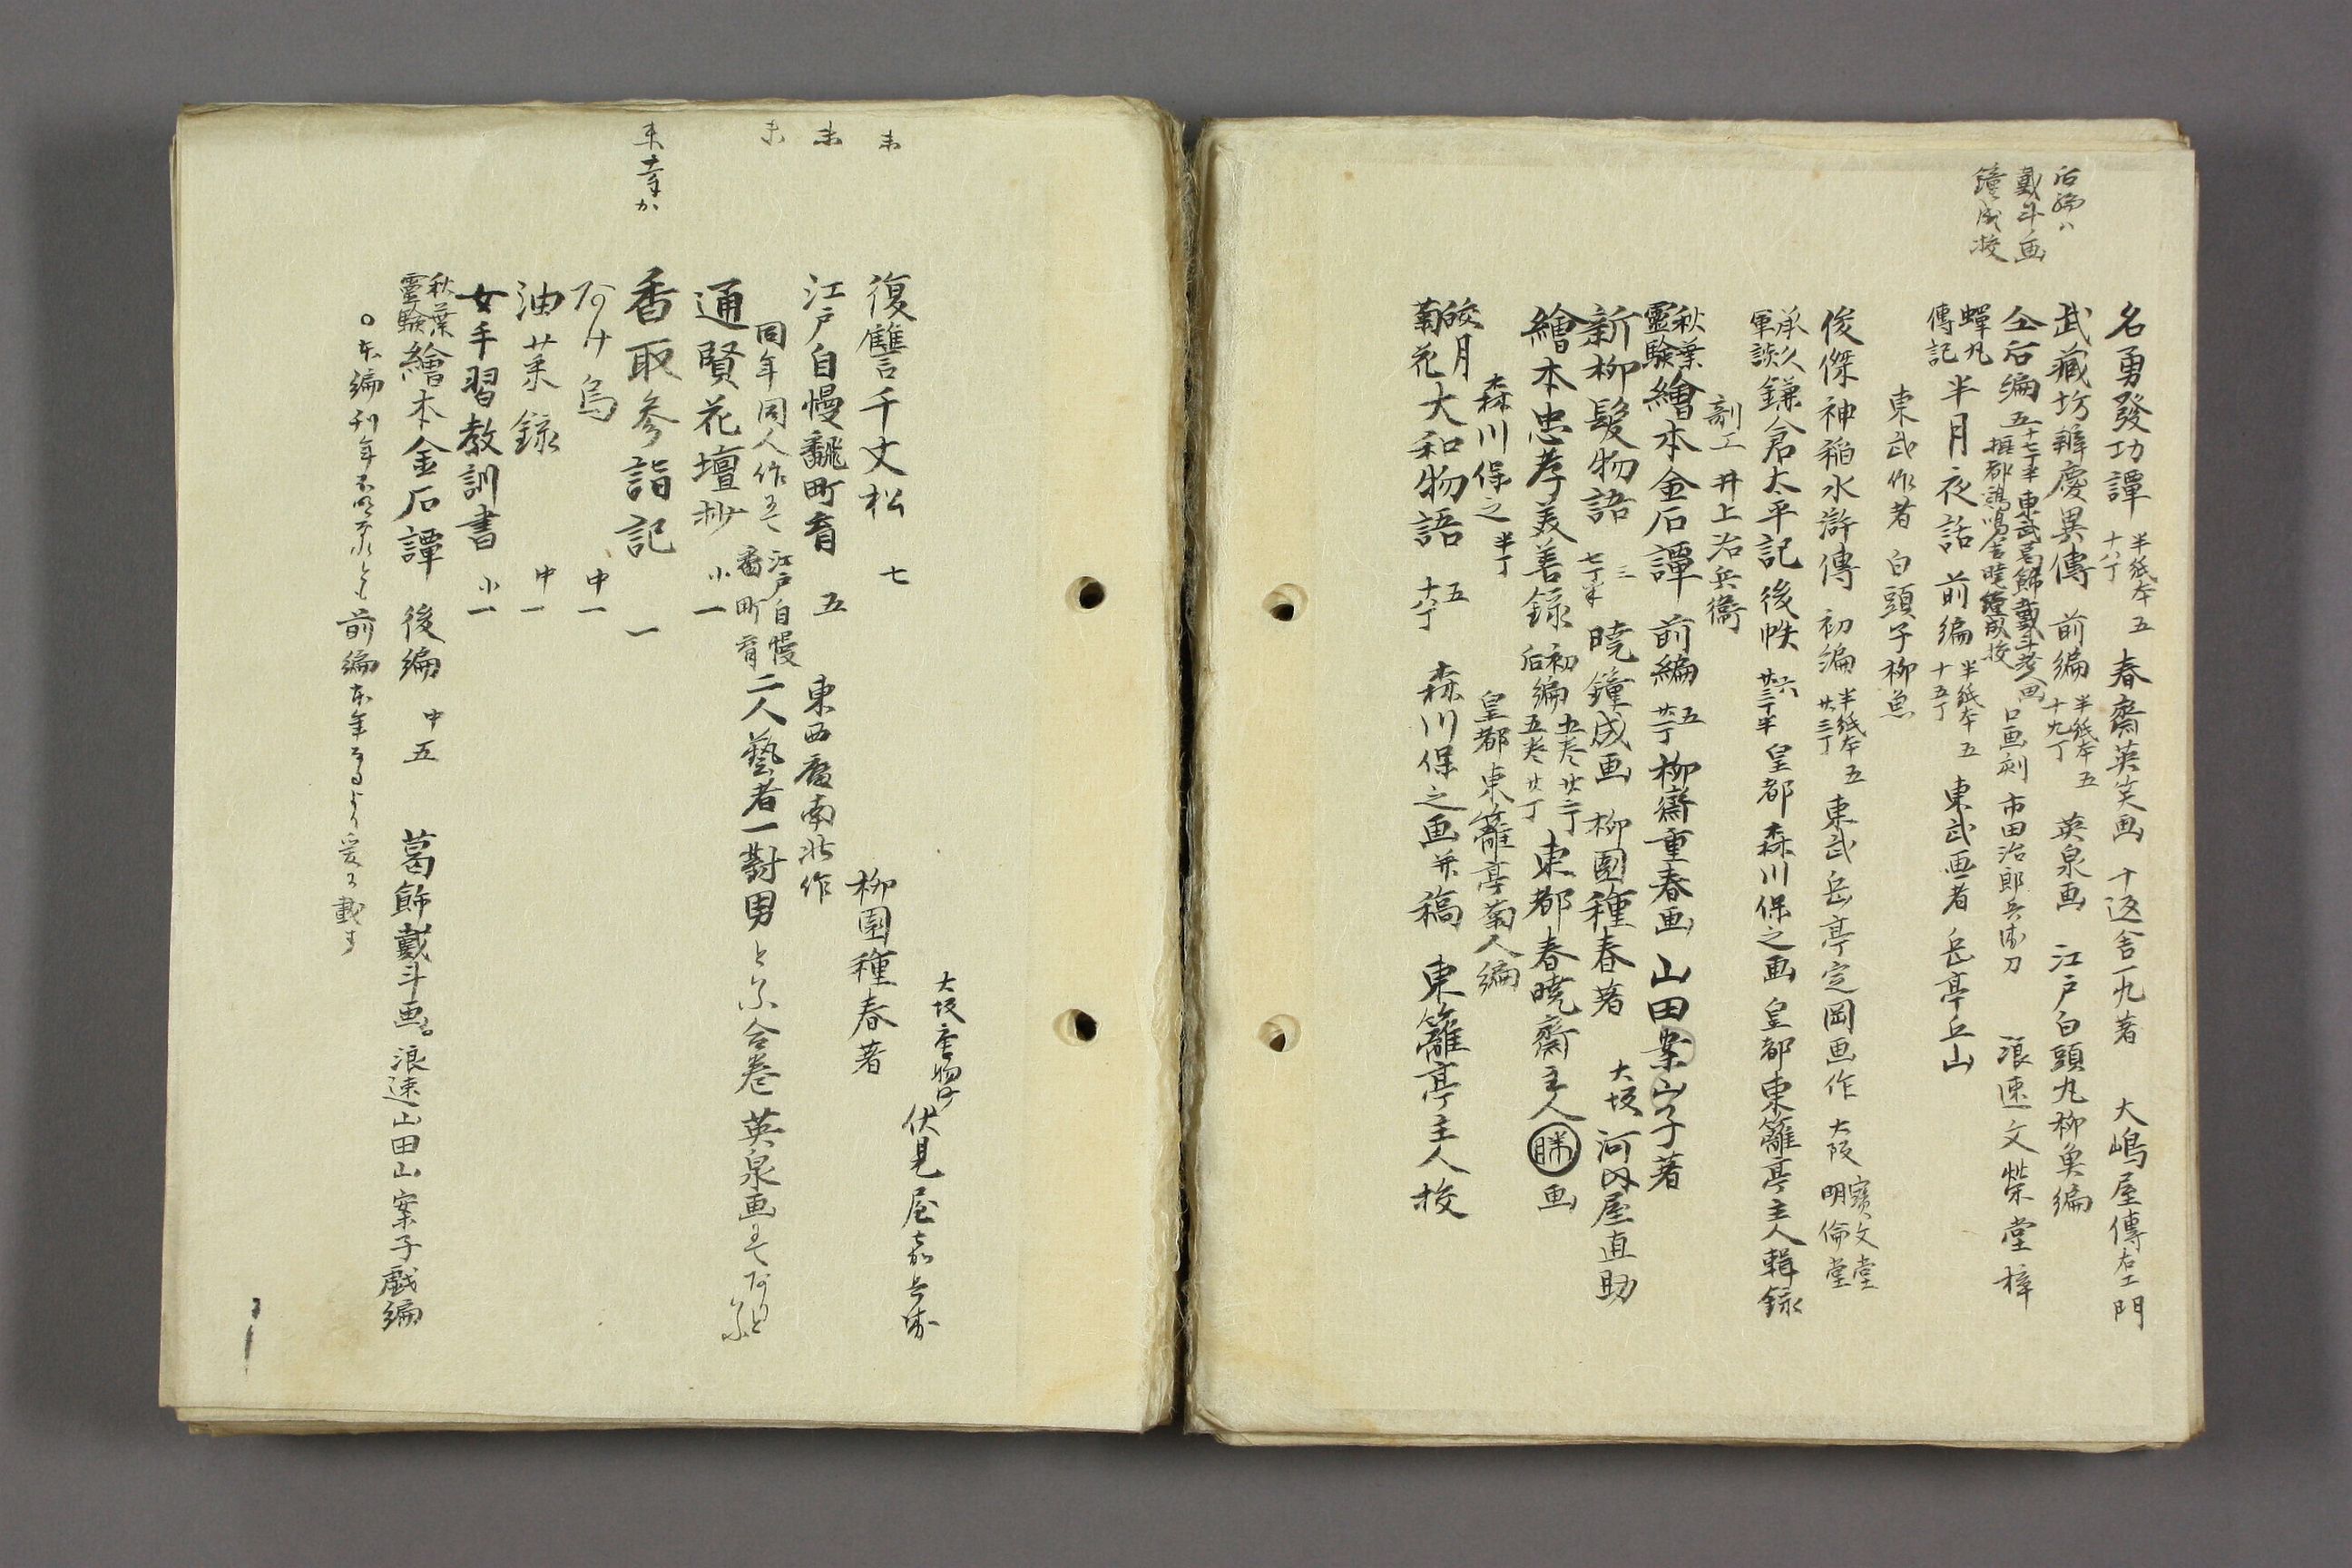 后編ハ
戴斗画
鐘成校
名勇發功譚 半紙本五 十八丁 春齋英笑画 十返舎一九著 大嶋屋傳右エ門
武藏坊辨慶異傳 前編 半紙本五 十九丁 英泉画 江戸白頭丸柳魚編
仝后編 五 十七丁半 東武葛飾戴斗老人画 摂都鶏鳴舎暁鐘成校 口画刻 市田治郎兵衛刀 浪速文榮堂梓
蟬丸傳記 半月夜話 前編 半紙本五 十五丁 東武画者 岳亭丘山
東武作者 白頭子柳魚
俊傑神稲水滸傳 初編 半紙本五 廿三丁 東武岳亭定岡画作 大阪 寶文堂 明倫堂
承久軍談 鎌倉太平記 後帙 六 廿三丁半 皇都 森川保之画 皇都東籬亭主人輯録
剞工 井上治兵衞
秋葉靈験 繪本金石譚 前編 五 廿一丁 柳齋重春画 山田案山子著
新柳髮物語 三 七丁半 暁鐘成画 柳園種春著 大坂 河内屋直助
繪本忠孝美善録 初編 五巻廿二丁 后編 五巻廿丁 東都春暁齋主人画
森川保之 半丁 皇都東籬亭菊人編
皎月菊花 大和物語 五 十八丁 森川保之画并稿 東籬亭主人校
大坂唐物町 伏見屋嘉兵衛
未 復讐千丈松 七 柳園種春著
未 江戸自慢飜町育 五 東西庵南北作
未 同年同人作 江戸自慢番町育 二人藝者一對男 合巻 英泉画
通賢花壇抄 小一
未 香取参詣記 一
烏 中一
油菜録 中一
女手習教訓書 小一
秋葉靈験 繪本金石譚 後編 中五 葛飾戴斗画 浪速山田山案子戯編
○本編刊年 前編本年 爰ニ載す